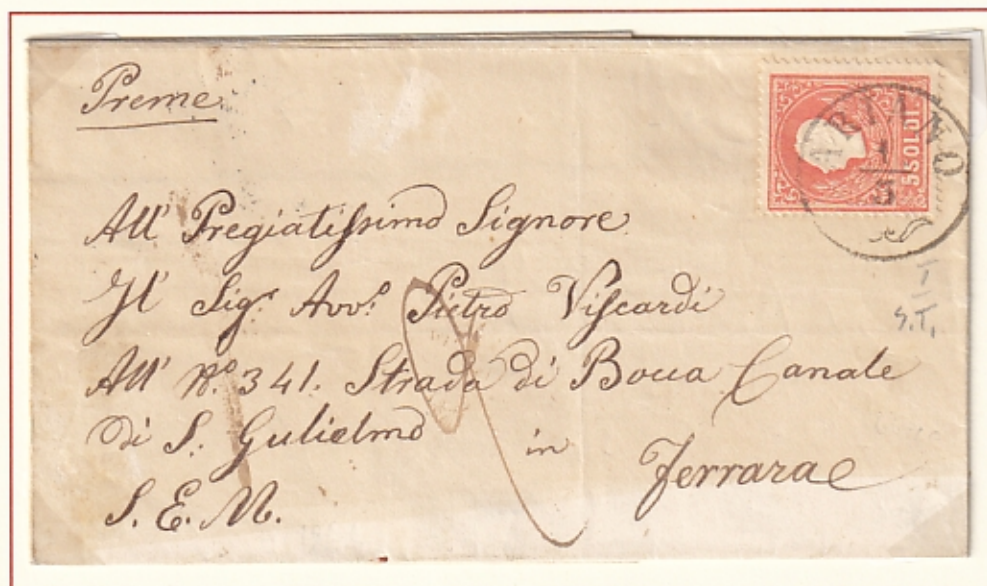 Preme
5 SOLDI
ARIANO
1
5
All' Pregiatissimo Signore
Il Sigr. Avvo. Pietro Viscardi
All' No. 341. Strada di Bocca Canale
di S. Gulielmo in Ferrara
S. E. M.
I
S.T.